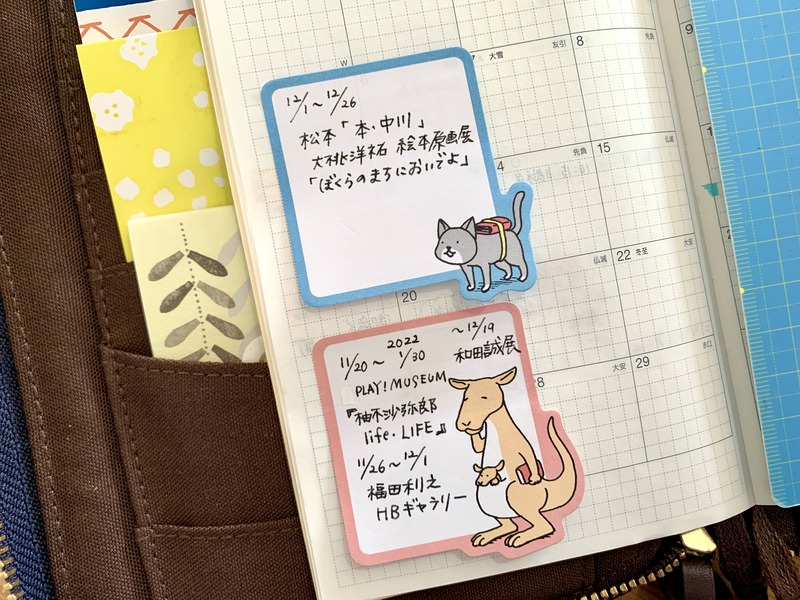 W
7 大雪 友引
8 先負
9
12/1〜12/26
松本「本・中川」
大桃洋祐 絵本原画展
「ぼくらのまちにおいでよ」
先負
15 仏滅
4
仏滅
22 冬至 大安
20
2022 〜12/19
11/20〜1/30 和田誠展
PLAY! MUSEUM
『柚木沙弥郎
life・LIFE』
11/26〜12/1
福田利之
HBギャラリー
8 大安
29 赤口